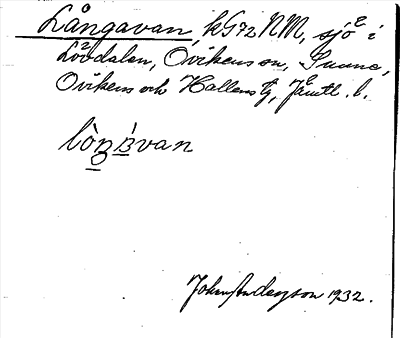 Långavan, kG72 NM, sjö i
Lövdalen, Ovikens sn, Sunne,
Ovikens och Hallens tg, Jämtl. l.
lòŋŋ́van
John Anderson 1932.